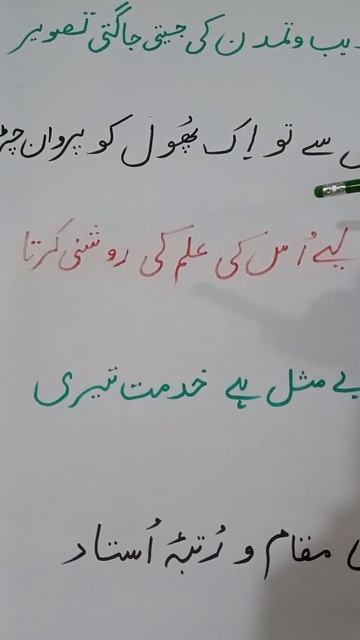 یب و تمدن کی جیتی جاگتی تصویر
سے تو اِک پھُول کو پروان
لیے اُس کی علم کی روشنی کرتا
بے مثل ہے خدمت تیری
مقام و رُتبۂ اُستاد